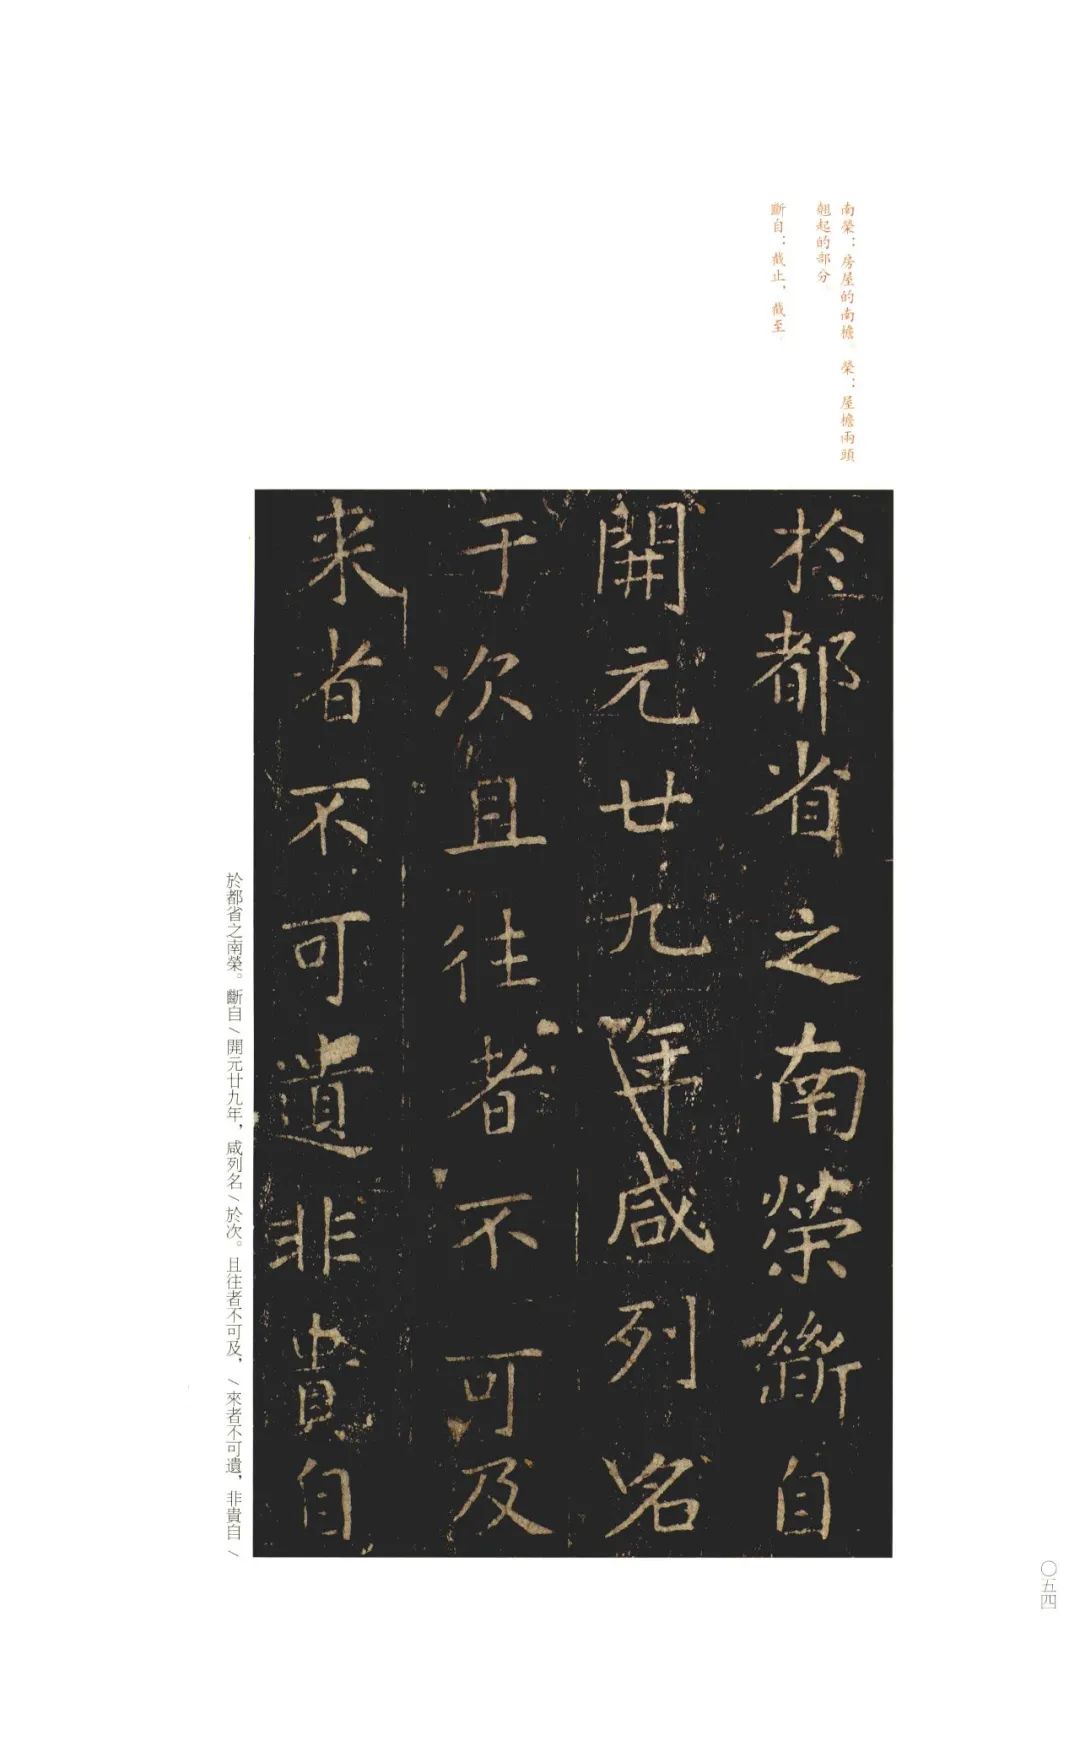 南榮：房屋的南檐。榮：屋檐兩頭
翹起的部分。
斷自：截止，截至。
於都省之南榮斷自
開元廿九年咸列名
于次且往者不可及
来者不可遺非貴自
於都省之南榮。斷自／開元廿九年，咸列名／於次。且往者不可及，／來者不可遺，非貴自／
〇五四